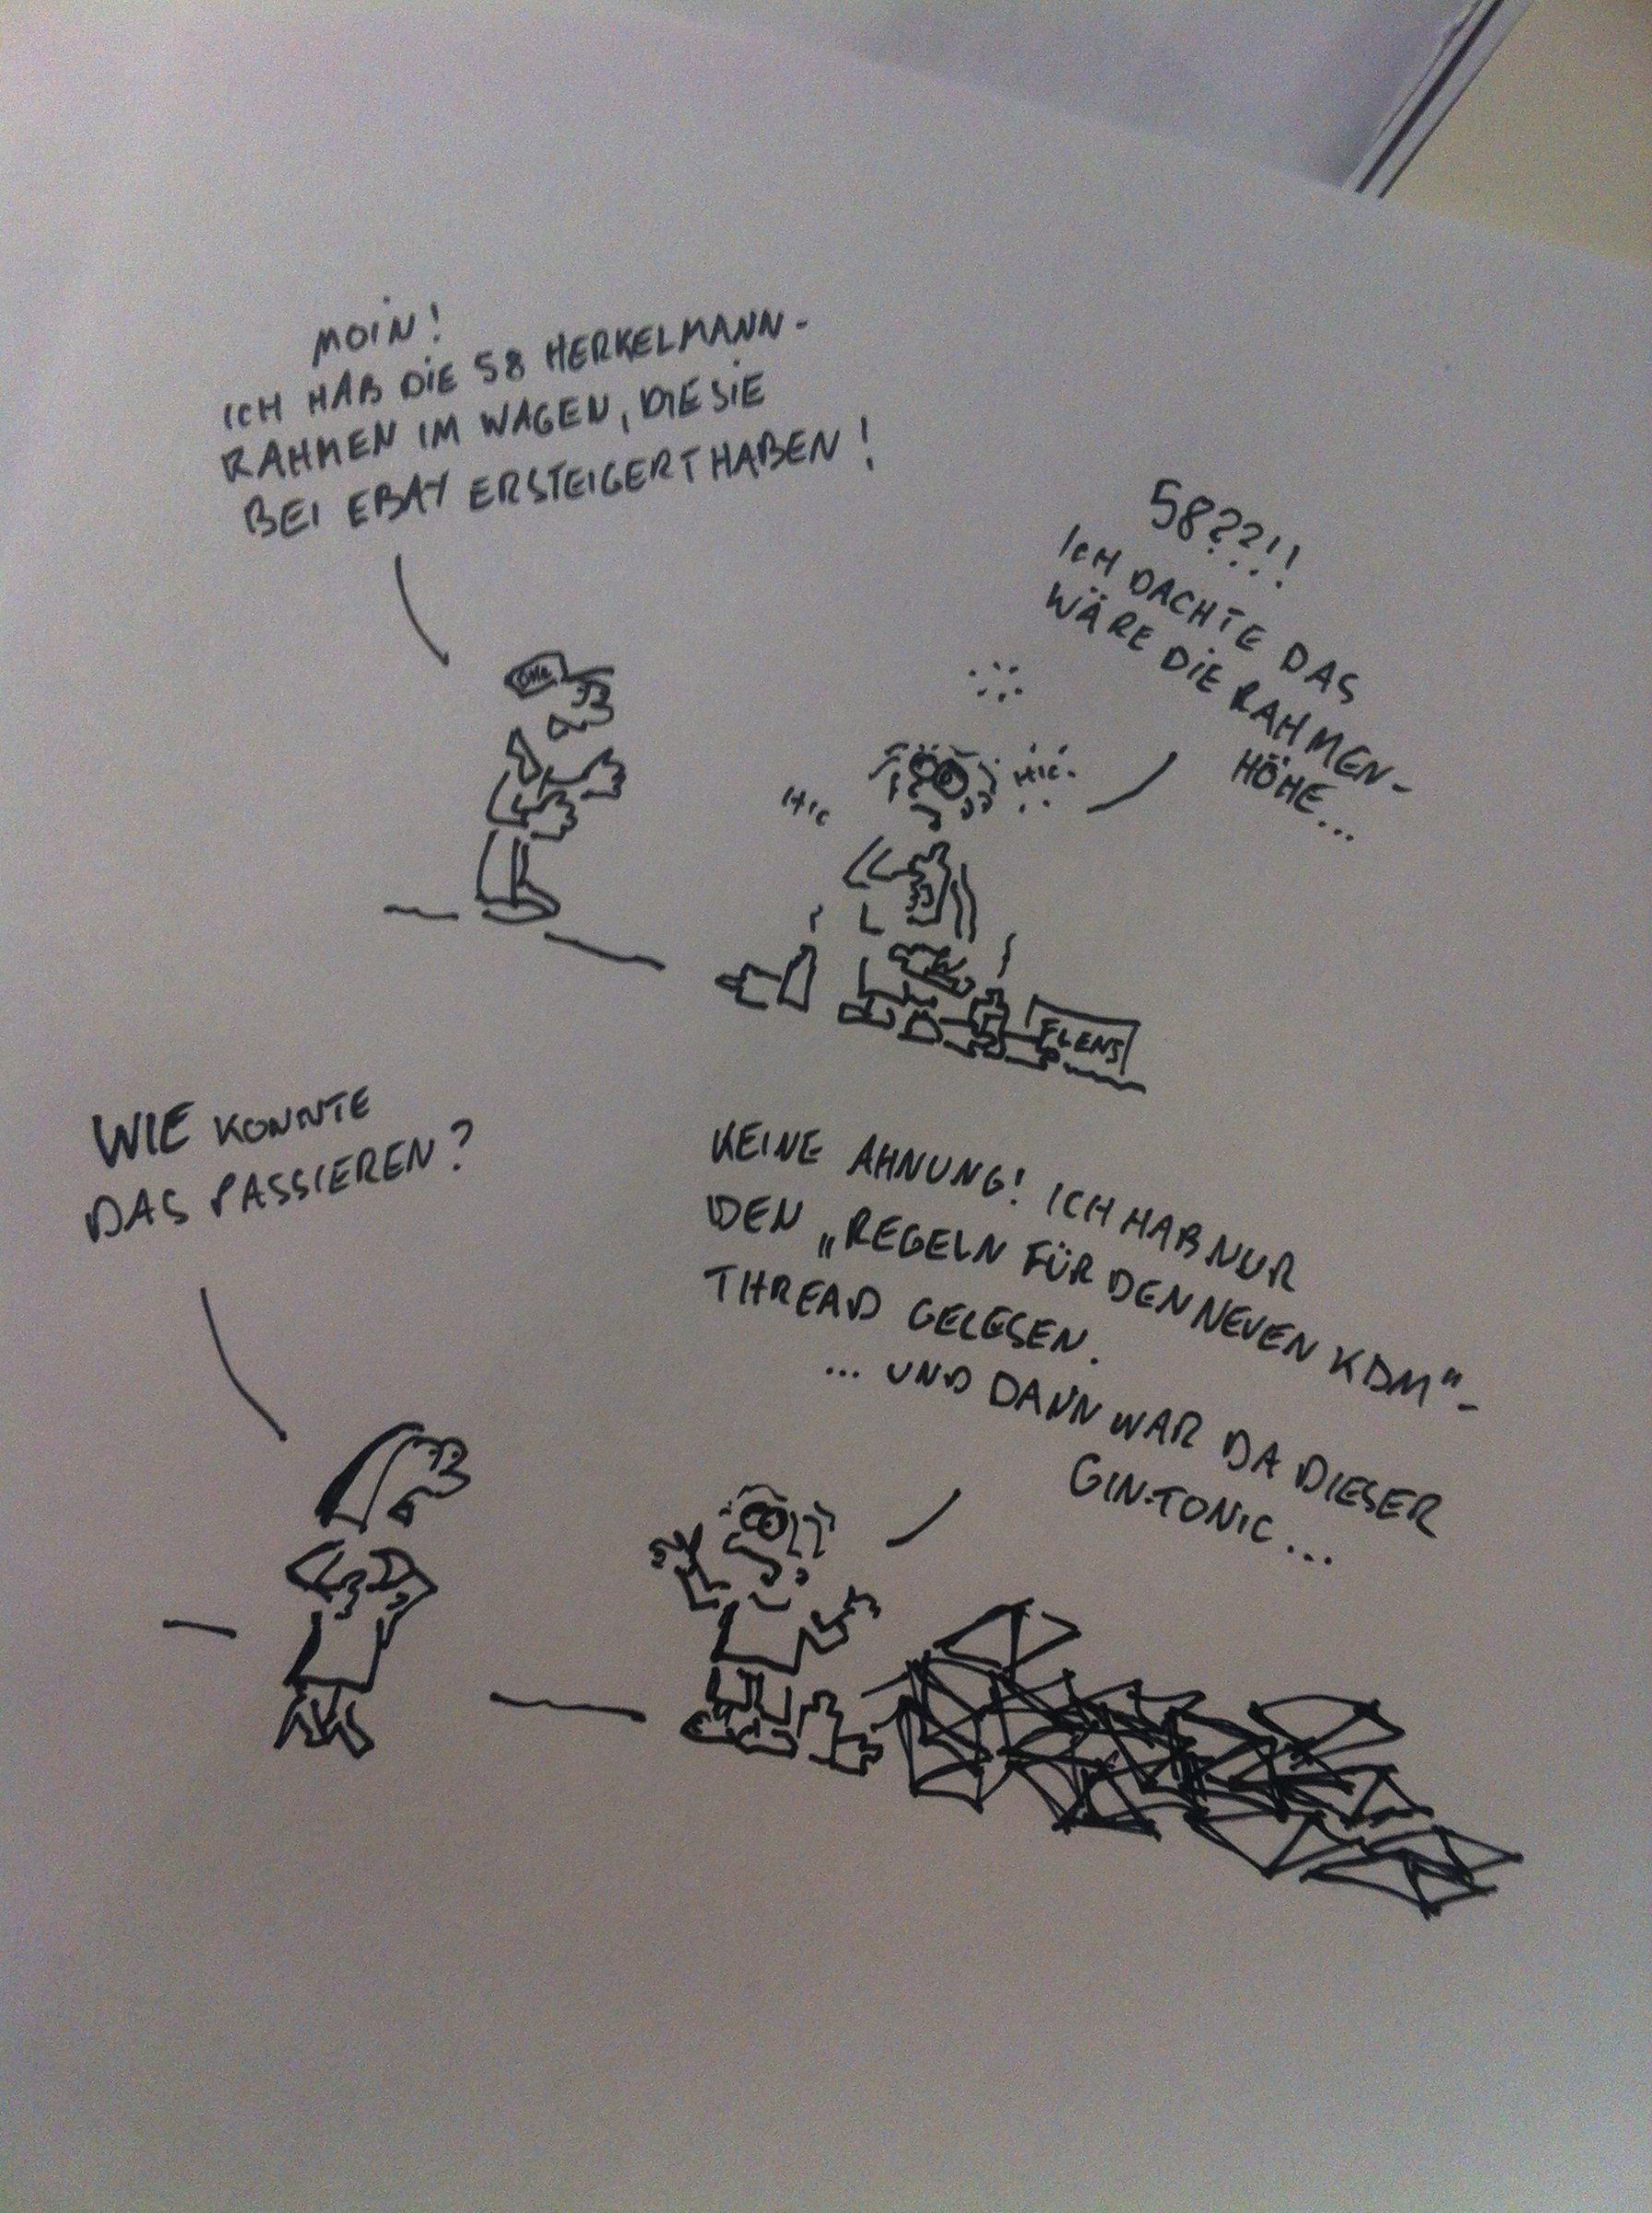 MOIN!
ICH HAB DIE 58 HERKELMANN-
RAHMEN IM WAGEN, DIE SIE
BEI EBAY ERSTEIGERT HABEN!
58??!!
ICH DACHTE DAS
WÄRE DIE RAHMEN-
HÖHE...
HIC
HIC
FLENS
WIE KONNTE
DAS PASSIEREN?
KEINE AHNUNG! ICH HAB NUR
DEN „REGELN FÜR DEN NEUEN KDM"-
THREAD GELESEN.
... UND DANN WAR DA DIESER
GIN-TONIC...